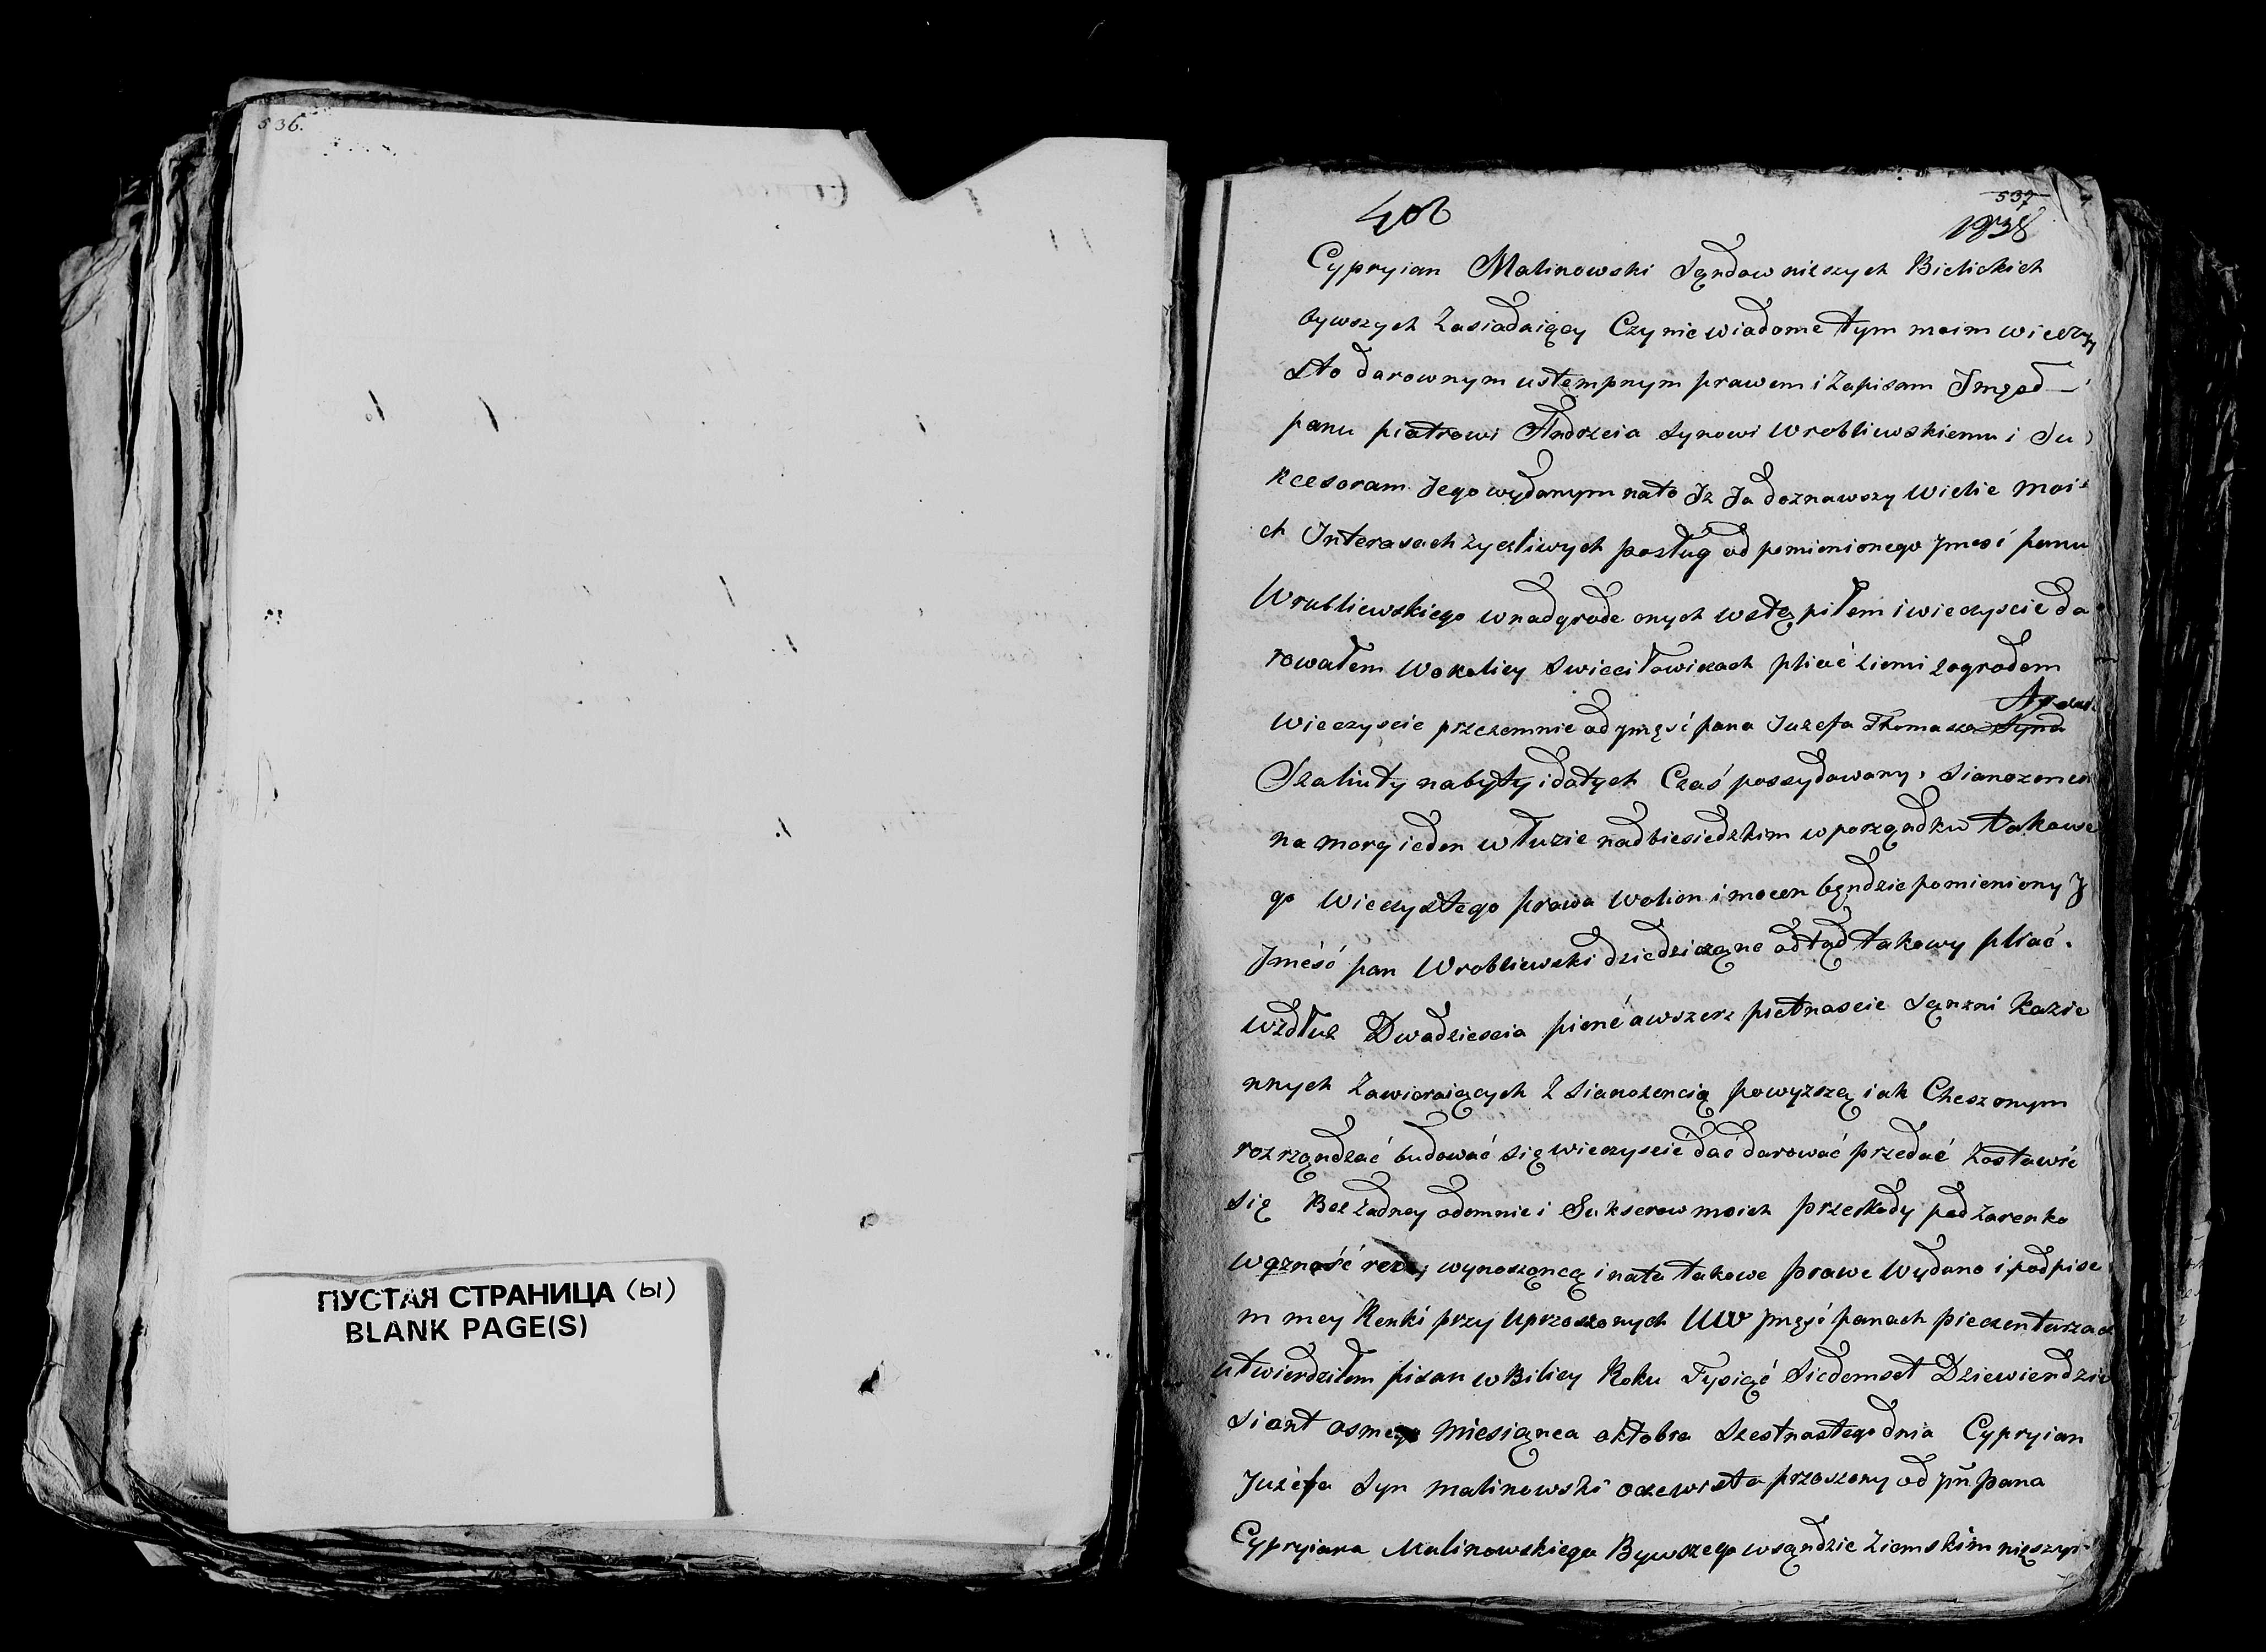 536.
ПУСТАЯ СТРАНИЦА (ы)
BLANK PAGE(S)
402
537
Cypryian Malinowski Sąndow niższych Bielickich
bywszych Zasiadaiący Czynie wiadome tym moim wieczy
sto darownym ustempnym prawem i Zapisam Imę od
panu piotrowi Andrzeia Synowi Wrobliewskiemu i Su
kcesoram Jego wydanym nato Jz Ja doznawszy Wielie moi
ch Interasach życzliwych posług od pomienionego Jmości pana
Wrubliewskiego wnadgrode onych wstąpiłem i wieczyscie da
rowałem Wokolicy Swięciłowiczach pliać ziemi zagrodem
Wieczyscie przezemnie od Jmęści pana Juzefa Thomasza Syna
Szaliuty nabyty i dotych Czaś possydowany, Sianozencii
na morg ieden włuzie nadbiesiedzkim w porząndku takowe
go Wieczystego prawa Wolion i mocen bęndzie pomieniony J
Jmość pan Wrobliewski dziedzicząno odtąd takowy pliać.
wzdłuz Dwadziescia pieńć awszerz pietnascie Sąnzni Kazie
nnych Zawieraiących z Sianozencią powyższą iak Chcąc onym
rozrząndzać budować się wieczyscie dać darować przedać Zostawić
się Bez żadney odemnie i Sukserow moich przeskody pod Zarenko
wązność rerzy wynoszącą i nato takowe prawo Wydano i podpise
m mey Renki przy Uproszonych UW Jmęść panach pieczentarzach
utwierdziłem pisan w Bilicy Roku Tysiąć Siedemset Dziewiendzie
siant osmego miesiąnca oktobra szestnastego dnia Cypryian
Juzefa Syn Malinowski oczewisto przoszony od Jm pana
Cypryiana Malinowskiego Bywszego wsąndzie Ziemskim niższym